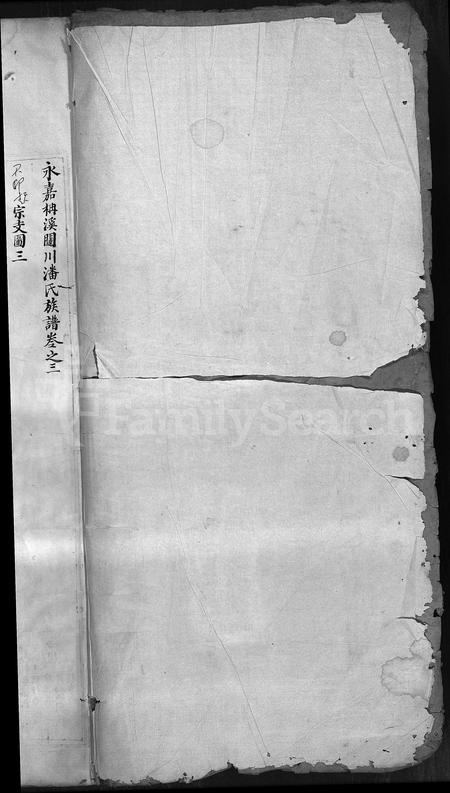 永嘉柟溪圖川潘氏族譜卷之三
宗支圖三
FamilySearch